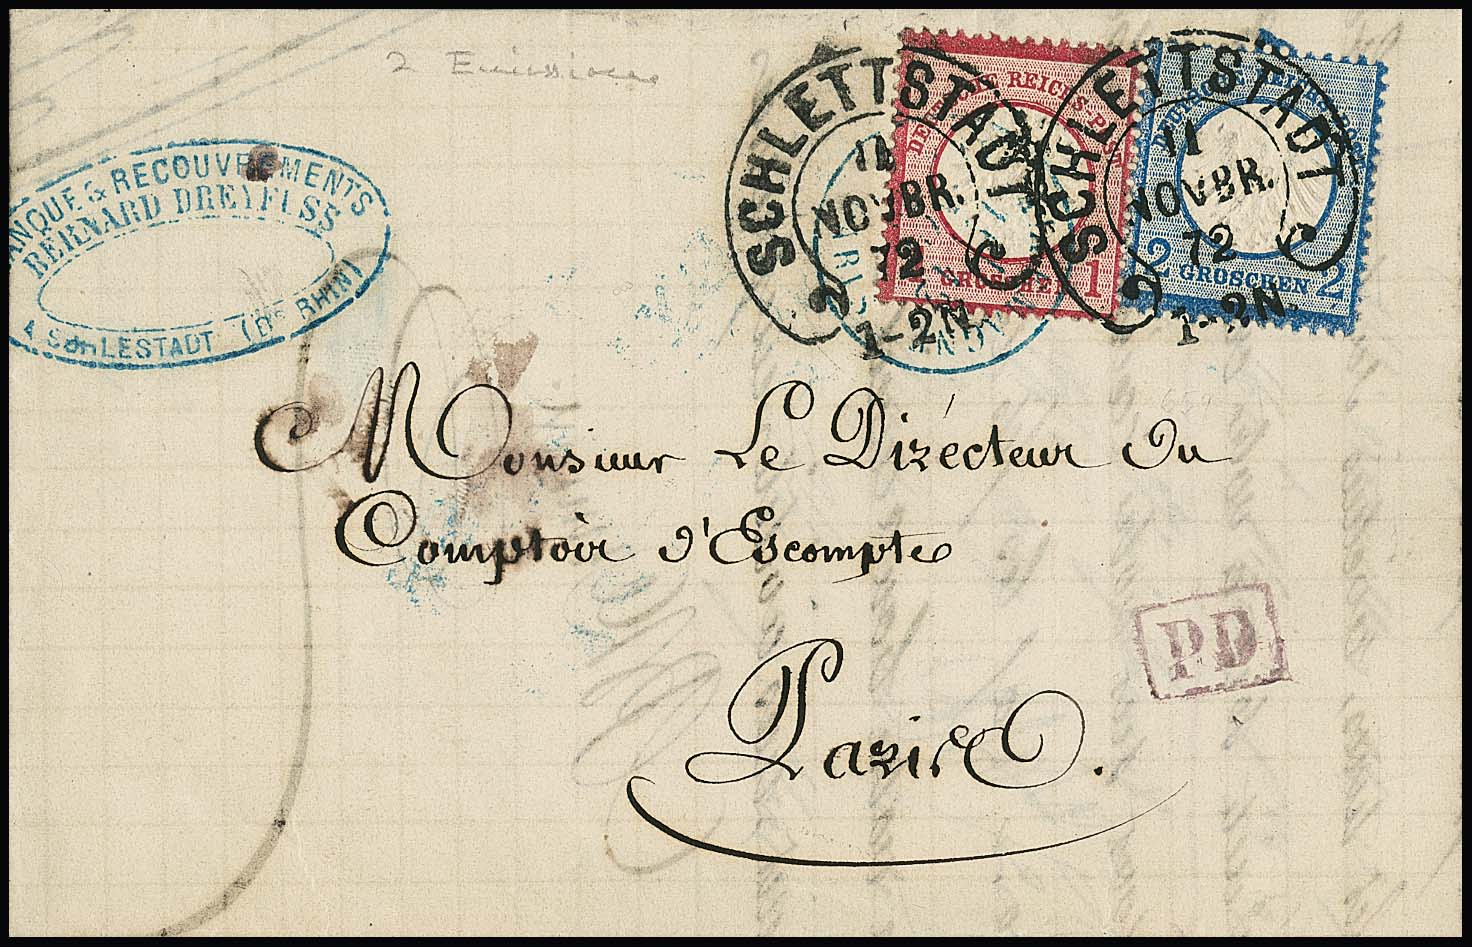 2 Emissionen
BANQUE & RECOUVREMENTS
BERNARD DREYFUSS
A SCHLESTADT (Bs RHIN)
SCHLETTSTADT
11
NOVBR.
72
1-2N.
DEUTSCHE REICHS-POST
1 GROSCHEN 1
SCHLETTSTADT
11
NOVBR.
72
1-2N.
DEUTSCHE REICHS-POST
2 GROSCHEN 2
Monsieur Le Directeur du
Comptoir d'Escompte
Paris.
PD